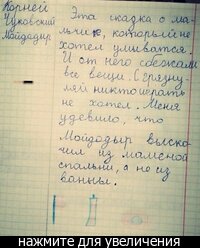 Корней
Чуковский
Мойдодыр
Эта сказка о ма-
льчике, который не
хотел умиватся.
И от него сбежали
все вещи. С грязну-
ляй никто играть
не хотел. Меня
удевило, что
Мойдодыр выско-
чил из мамсной
спальни, а не из
ванны.
нажмите для увеличения